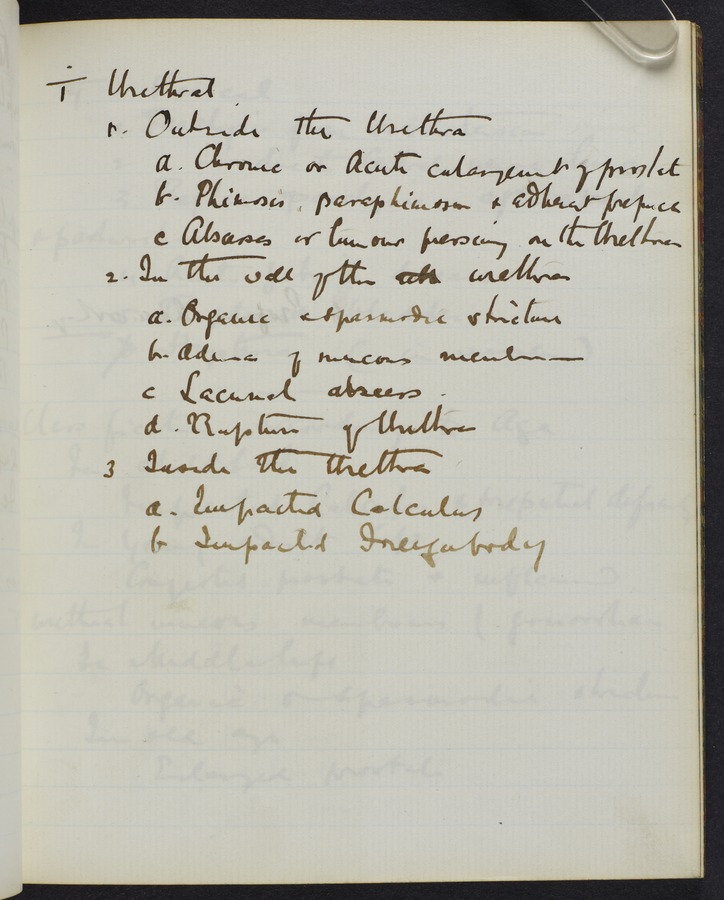 I Urethral
1. Outside the Urethra
a. Chronic or Acute enlargement of prostat
b. Phimosis, paraphimosis & adherent prepuce
c Abscess or tumour pressing on the Urethra
2. In the wall of the urethra
a. Organic & spasmodic stricture
b. Odema of mucous membrane
c Lacunal abscess.
d. Rupture of Urethra
3 Inside the Urethra
a. Impacted Calculus
b Impacted Foreign body